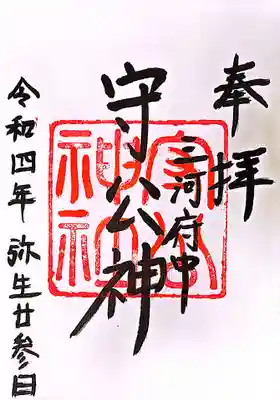 奉拝
三河府中
守公神
守公
神社
令和四年 弥生廿参日